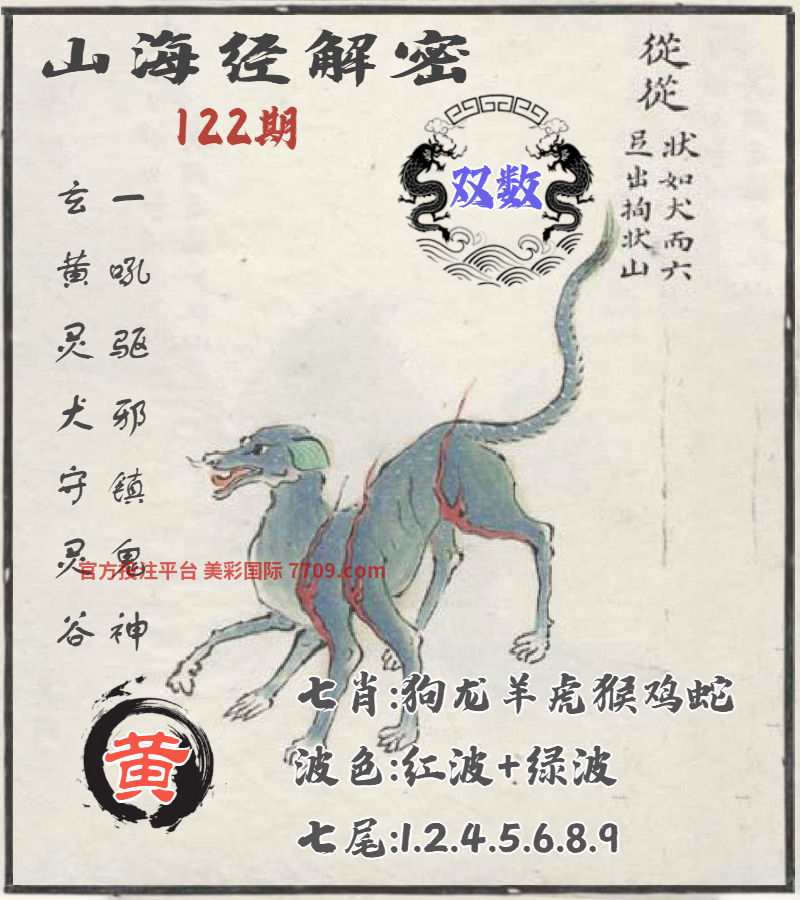 山海经解密
122期
從從
狀如犬而六
足出拘狀山
双数
玄黄灵犬守灵谷
一吼驱邪镇鬼神
官方投注平台 美彩国际 7709.com
黄
七肖:狗龙羊虎猴鸡蛇
波色:红波+绿波
七尾:1.2.4.5.6.8.9